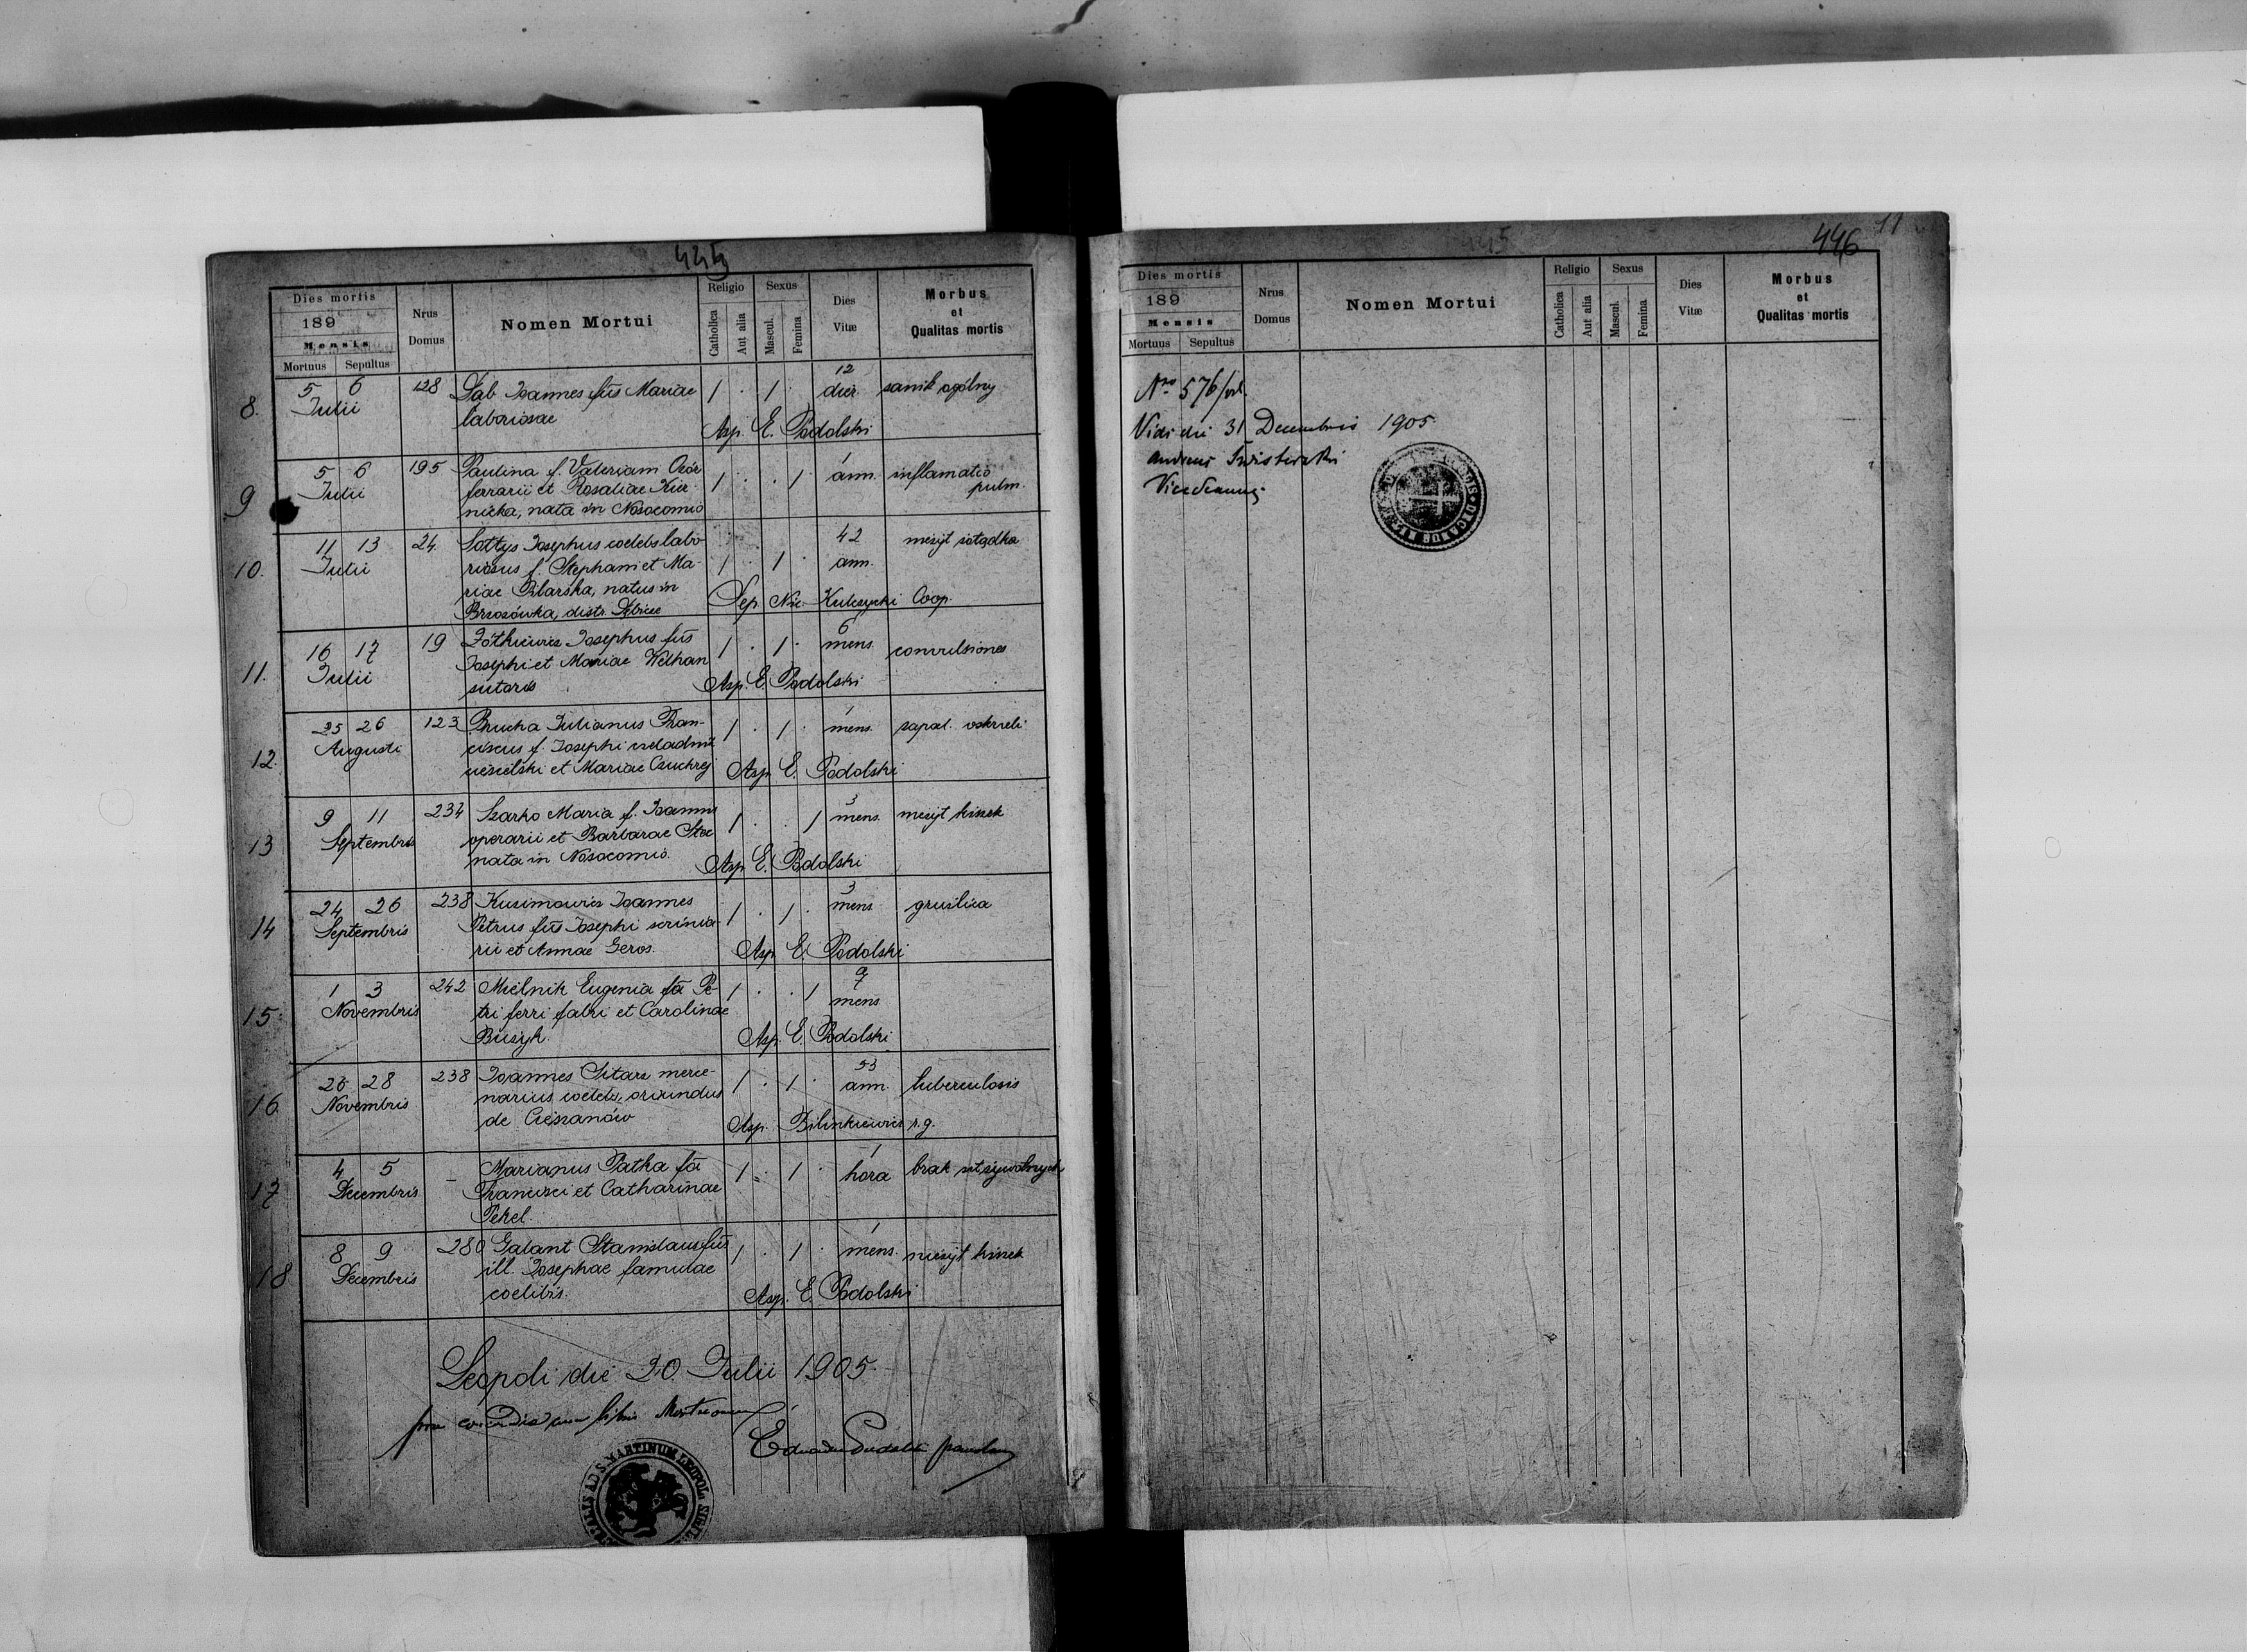 445
Dies mortis
189
Mensis
Mortuus Sepultus
Nrus Domus
Nomen Mortui
Religio
Catholica
Aut alia
Sexus
Mascul.
Femina
Dies Vitæ
Morbus et Qualitas mortis
8. 5 6 Julii 128 Dąb Joannes fils Mariae 1 . 1 . 12 dier. zanik ogólny
laboriosae
Asp. E. Podolski
9 5 6 Julii 195 Paulina f. Valeriani
ferrarii et Rosaliae Kier-
nicka, nata in Nosocomio
1 . . 1 1 ann. inflamatio
pulm.
10. 11 13 Julii 24. Sottys Josephus coelebs labo-
riosus f. Stephani et Ma-
riae Pilarska, natus in
Brzozówka, distr.
1 . 1 . 42 ann. nieżyt żołądka
Sep. Nic. Kulczycki Coop.
11. 16 17 Julii 19 Żółkiewicz Josephus fils
Josephi et Mariae Welhan
sutoris
1 . 1 . 6 mens. convulsiones
Asp. E. Podolski
12. 25 26 Augusti 123 Prucha Julianus Fran-
ciscus f. Josephi
et Mariae Czuchrej
1 . 1 . 1 mens. zapal. oskrzeli
Asp. E. Podolski
13 9 11 Septembris 234 Szarko Maria f. Joannis
operarii et Barbarae
nata in Nosocomio.
1 . . 1 3 mens. nieżyt kiszek
Asp. E. Podolski
14 24 26 Septembris 238 Kusimowicz Joannes
Petrus fils Josephi scrinia-
rii et Annae Geros.
1 . 1 . 3 mens gruźlica
Asp. E. Podolski
15. 1 3 Novembris 242 Mielnik Eugenia fa Pe-
tri ferri fabri et Carolinae
Busyk.
1 . . 1 9 mens.
Asp. E. Podolski
16. 26 28 Novembris 238 Joannes Sitarz merce-
narius coelebs, oriundus
de Cieszanów
1 . 1 . 53 ann. tuberculosis
Asp. Bilinkiewicz r.g.
17 4 5 Decembris – Marianus Patka fa
Francisci et Catharinae
Pekel.
1 . 1 . 1 hora brak sił żywotnych
18 8 9 Decembris 280 Galant Stanislaus fils
ill. Josephae famulae
coelibis.
1 . 1 . 1 mens. nieżyt kiszek
Asp. E. Podolski
Leopoli die 20 Julii 1905.
libro Mortuorum
AD S. MARTINUM LEOPOL. SIGILL
446
11
Dies mortis
189
Mensis
Mortuus Sepultus
Nrus Domus
Nomen Mortui
Religio
Catholica
Aut alia
Sexus
Mascul.
Femina
Dies Vitæ
Morbus et Qualitas mortis
Nro 576/
Vidi die 31 Decembris 1905
Vicedecanus